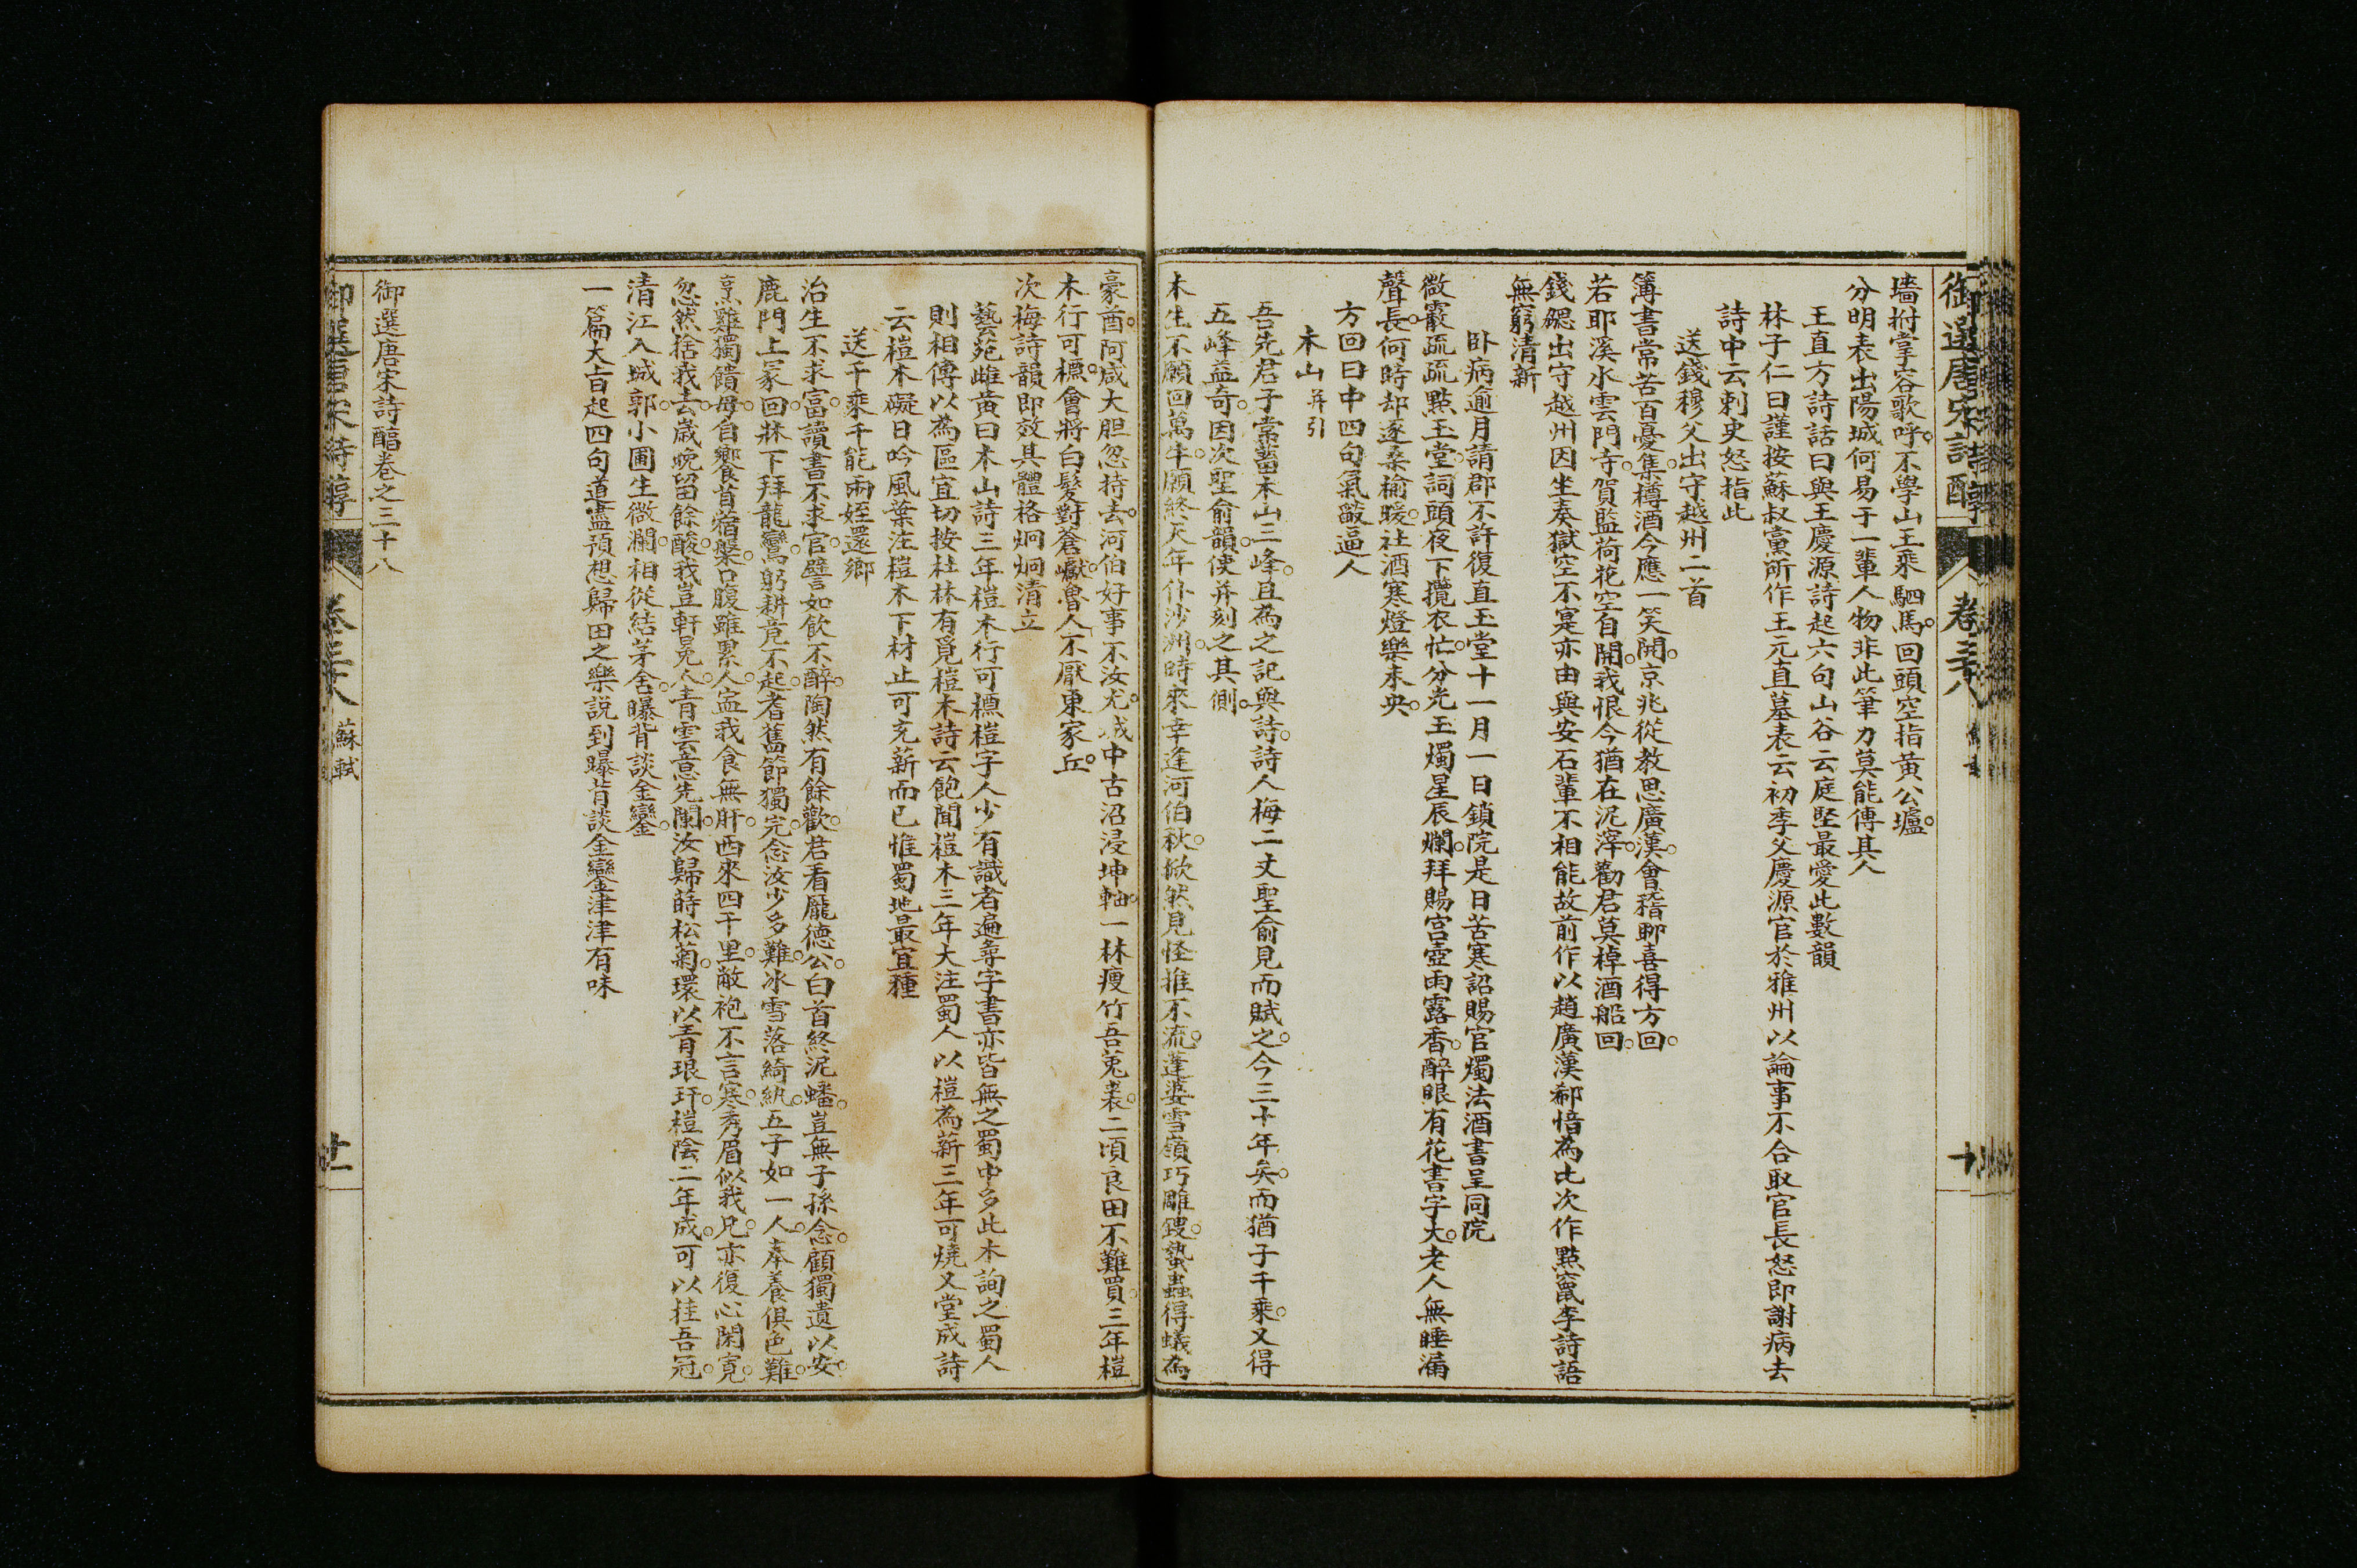 御選唐宋詩醇
卷三十八
墻拊掌容歌呼不學山王乘駟馬回頭空指黃公壚
分明表出陽城何易于一輩人物非此筆力莫能傳其人
王直方詩話曰與王慶源詩起六句山谷云庭堅最愛此數韻
林子仁曰謹按蘇叔黨所作王元直墓表云初季父慶源官於雅州以論事不合取官長怒即謝病去
詩中云刺史怒指此
送錢穆父出守越州二首
簿書常苦百憂集樽酒今應一笑開京兆從教思廣漢會稽聊喜得方回
若耶溪水雲門寺賀監荷花空自開我恨今猶在泥滓勸君莫棹酒船回
錢勰出守越州因坐奏獄空不寔亦由與安石輩不相能故前作以趙廣漢郗愔為比次作點竄李詩語
無窮清新
卧病逾月請郡不許復直玉堂十一月一日鎖院是日苦寒詔賜官燭法酒書呈同院
微霰疏疏點玉堂詞頭夜下攬衣忙分光玉燭星辰爛拜賜宮壺雨露香醉眼有花書字大老人無睡漏
聲長何時却逐桑榆暖社酒寒燈樂未央
方回曰中四句氣燄逼人
木山并引
吾先君子常蓄木山三峰且為之記與詩詩人梅二丈聖俞見而賦之今三十年矣而猶子千乘又得
五峰益奇因次聖俞韻使并刻之其側
木生不願回萬牛願終天年仆沙洲時來幸逢河伯秋掀然見怪推不流蓬婆雪嶺巧雕鎪蟄蟲得蟻為
豪酋阿咸大胆忽持去河伯好事不汝尤城中古沼浸坤軸一林瘦竹吾菟裘二頃良田不難買三年榿
木行可槱會將白髮對蒼巘魯人不厭東家丘
次梅詩韻即效其體格炯炯清立
藝苑雌黃曰木山詩三年榿木行可槱榿字人少有識者遍尋字書亦皆無之蜀中多此木詢之蜀人
則相傳以為區宜切按杜林有覓榿木詩云飽聞榿木三年大注蜀人以榿為薪三年可燒又堂成詩
云榿木礙日吟風葉注榿木下材止可充薪而已惟蜀地最宜種
送千乘千能兩姪還鄉
治生不求富讀書不求官譬如飲不醉陶然有餘歡君看龐德公白首終泥蟠豈無子孫念顧獨遺以安
鹿門上冢回牀下拜龍鸞躬耕竟不起耆舊節獨完念汝少多難冰雪落綺紈五子如一人奉養俱色難
烹雞獨饋母自饗苜蓿槃口腹雖累人寍我食無肝西來四千里敝袍不言寒秀眉似我兄亦復心閑寬
忽然捨我去歲晚留餘酸我豈軒冕人青雲意先闌汝歸蒔松菊環以青琅玕榿陰二年成可以挂吾冠
清江入城郭小圃生微瀾相從結茅舍曝背談金鑾
一篇大旨起四句道盡預想歸田之樂説到曝背談金鑾津津有味
御選唐宋詩醇卷之三十八
御選唐宋詩醇
卷三十八
蘇軾
廿一